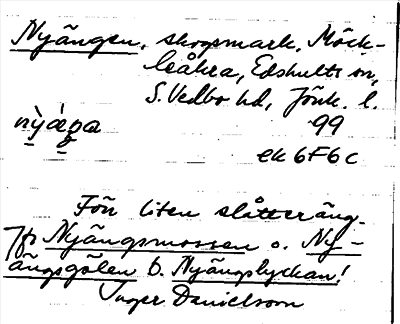 Nyängen, skogsmark, Möck-
leåkra, Edshults sn,
S. Vedbo hd, Jönk. l.
99
ek 6F6c
Förr liten slåtteräng.
Jfr Nyängsmossen o. Ny-
ängsgölen b. Nyängslyckan!
Inger Danielsson